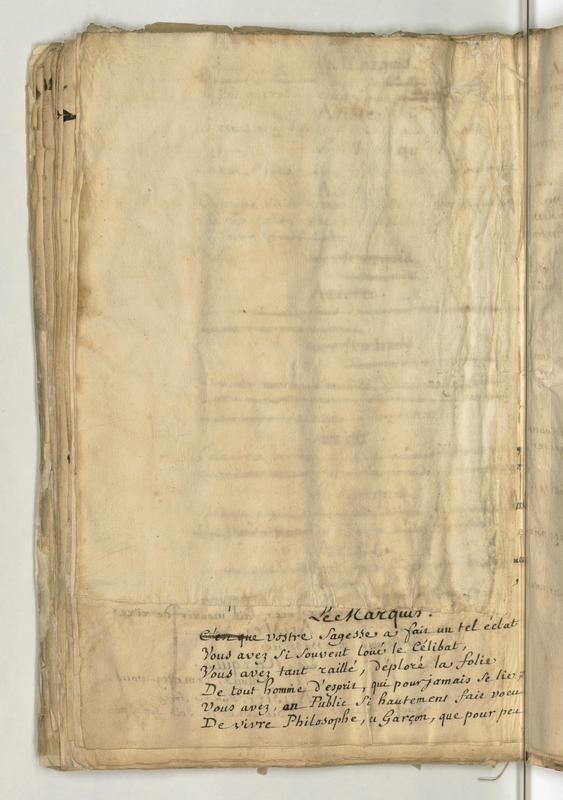 Le Marquis.
C'en que vostre Sagesse a fait un tel éclat
Vous avez si souvent loüé le Célibat,
Vous avez tant raillé, déploré la folie
De tout homme d'esprit, qui pour jamais se lie;
Vous avez, en Public si hautement fait voeu
De vivre Philosophe, u Garçon, que pour peu